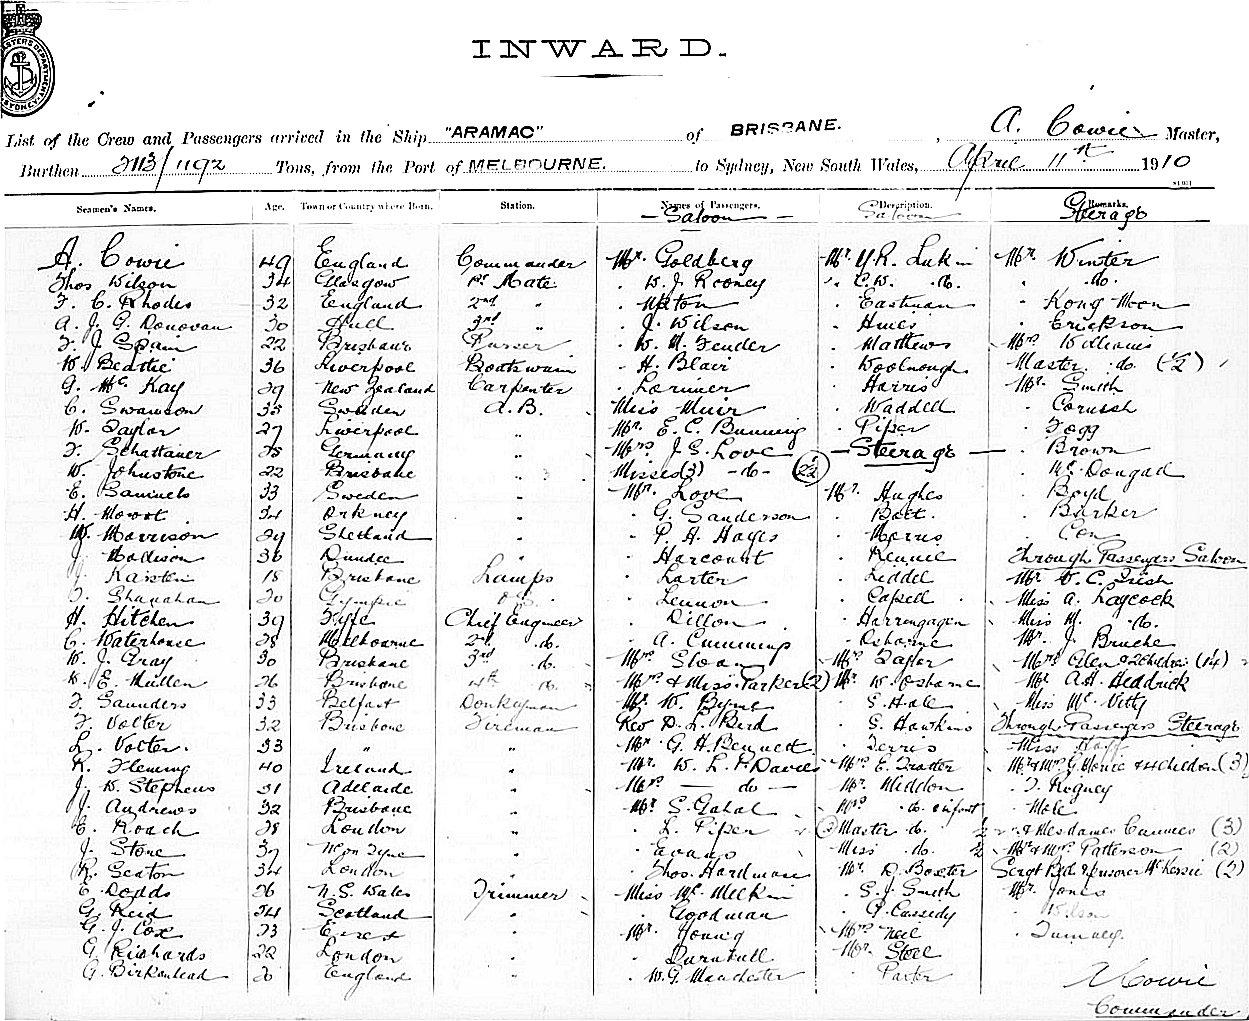 MASTERS DEPARTMENT
SYDNEY
INWARD.
List of the Crew and Passengers arrived in the Ship "ARAMAC" of BRISBANE. , A. Cowie Master,
Burthen 2113/1192 Tons, from the Port of MELBOURNE. to Sydney, New South Wales, April 11th 1910
Seamen's Names. Age. Town or Country where Born. Station. Names of Passengers. Description. Remarks.
Saloon Saloon Steerage
A. Cowie 49 England Commander Mr. Goldberg Mr. Y. R. Lukin Mr. Winter
Thos Wilson 34 Glasgow 1st Mate " W. J. Rooney " C. W. do. " do.
F. C. Rhodes 32 England 2nd " " Upton " Eastman " Kong Moon
A. J. G. Donovan 30 Hull 3rd " " J. Wilson " Hines " Erickson
F. J. Spain 22 Brisbane Purser " W. M. Fender " Mathews Mrs Williams
W. Beattie 36 Liverpool Boatswain " H. Blair " Woolnough Master do. (1/2)
G. Mc Kay 29 New Zealand Carpenter " Lorimer " Harris Mr. Smith
C. Swanson 35 Sweden A.B. Miss Muir " Waddell " Cornish
W. Taylor 27 Liverpool " Mr. E. C. Bunning " Piper " Fogg
F. Schattauer 25 Germany " Mrs J. S. Love Steerage " Brown
W. Johnstone 22 Brisbane " Misses (3) - do - (22) " Mc Dougad
E. Samuels 33 Sweden " Mr. Love Mr. Hughes " Boyd
H. Mowat 34 Orkney " " G. Sanderson " Bott. " Barker
W. Morrison 29 Shetland " " P. H. Hayes " Morris " Con
J. Madison 36 Dundee " " Harcourt " Rennie Through Passengers Saloon
J. Karsten 18 Brisbane Lamps " Larter " Liddel Mr. V. C. Irish
T. Shanahan 20 Gympie O.S. " Lennon " Capell Miss A. Laycock
H. Hitchen 39 Fyffe Chief Engineer " Dillon " Harrengagen Miss M. do.
C. Waterhouse 28 Melbourne 2nd do. " A. Cummings " Osborne Mr. J. Bruche
W. J. Gray 30 Brisbane 3rd do. Mrs. Sloan Mrs. Taylor Mrs. Glen & 2 Children (1 1/4)
W. E. Mullen 26 Brisbane 4th do. Mrs & Miss Parker (2) Mr. W. Osborne Mr. A. H. Headrick
F. Saunders 33 Belfast Donkeyman Mr. W. Byrne " E. Hale Miss Mc Vitty
F. Volter 32 Brisbane Fireman Rev D. L. Bird " G. Hawkins Through Passengers Steerage
L. Volter. 33 " " Mr. G. H. Bennett " Ferris Miss Hoff
R. Fleming 40 Ireland " Mr. W. L. P. Davies Mrs E. Trotter Mr & Mrs G. Monie & 4 Children (3)
J. W. Stephens 31 Adelaide " Mrs — do — Mr. Middon " F. Rogney
J. Andrews 32 Brisbane " Mr. S. Gahal Mrs. do. & infant " Mole
C. Roach 28 London " " L. Piper Master do. 1/2 " & Mesdames Cannies (3)
J. Stone 37 N'con Tyne " " Evans Miss do. 1/2 Mr & Mrs Patterson (2)
R. Seaton 34 London " " Thos. Hardman Mr. D. Boxter Sergt Bird & Prisoner McKessie (2)
E. Dodds 26 N. S. Wales Trimmer Miss Mc Meekin " S. J. Smith Mr. Jones
G. Reid 24 Scotland " " Goodman " P. Cassidy " Wilson
G. J. Cox 23 Essex " Mr. Young Mrs Neil " Tumney.
G. Richards 22 London " " Turnbull Mr. Steel
G. Birkenhead 26 England " " W. G. Manchester " Parker
A Cowie
Commander